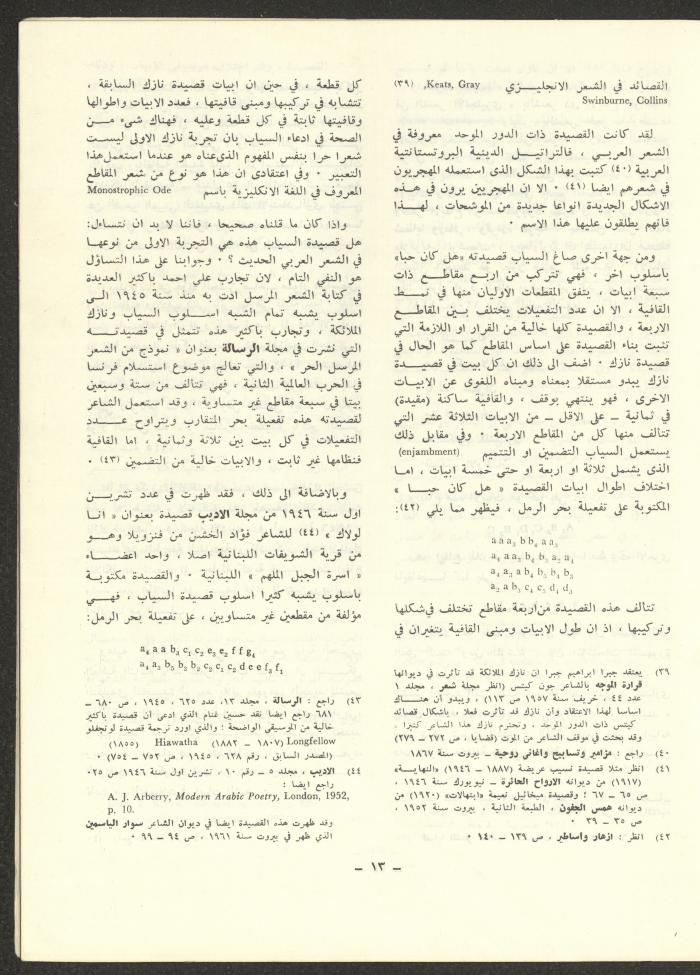 القصائد في الشعر الانجليــــزي Keats, Gray, (٣٩)
Swinburne, Collins
لقد كانت القصيدة ذات الدور الموحد معروفة في
الشعر العربــي ، فالتراتيــــل الدينية البروتستانتية
العربية (٤٠) كتبت بهذا الشكل الذى استعمله المهجريون
في شعرهم ايضا (٤١) ٠ الا ان المهجريين يرون في هـــذه
الاشكال الجديدة انواعا جديدة من الموشحات ، لهــــذا
فانهم يطلقون عليها هذا الاسم ٠
ومن جهة اخرى صاغ السياب قصيدته «هل كان حبا»
باسلوب اخر ، فهي تتركب من اربــع مقاطـــع ذات
سبعة ابيات ، يتفق المقطعات الاوليان منها في نمـــط
القافية ، الا ان عدد التفعيلات يختلف بــين المقاطــع
الاربعة ، والقصيدة كلها خالية من القرار او اللازمة التي
تثبت بناء القصيدة على اساس المقاطع كما هو الحال في
قصيدة نازك ٠ اضف الى ذلك ان كل بيت في قصيــــدة
نازك يبدو مستقلا بمعناه ومبناه اللغوى عن الابيــات
الاخرى ، فهو ينتهي بوقف ، والقافية ساكنة (مقيدة)
في ثمانية – على الاقل – من الابيات الثلاثة عشر التي
تتالف منها كل من المقاطع الاربعة ٠ وفي مقابل ذلك
يستعمل السياب التضمين او التتميم (enjambment)
الذى يشمل ثلاثة او اربعة او حتى خمسة ابيات ، امـا
اختلاف اطوال ابيات القصيدة « هل كان حبـــا »
المكتوبة على تفعيلة بحر الرمل ، فيظهر مما يلي (٤٢):
تتألف هذه القصيدة من اربعة مقاطع تختلف في شكلها
وتركيبها ، اذ ان طول الابيات ومبنى القافية يتغيران في
٣٩) يعتقد جبرا ابراهيم جبرا ان نازك الملائكة قد تأثرت في ديوانها
قرارة الموجه بالشاعر جون كيتس (انظر مجلة شعر ، مجلد ١
عدد ٤٤ ، خريف سنة ١٩٥٧ ص ١١٣) ، ويبدو أن هنـــاك
اساسا لهذا الاعتقاد وأن نازك قد تأثرت فعلا ، باشكال قصائد
كيتس ذات الدور الموحد ، وتحترم نازك هذا الشاعر كثيرا ،
وقد بحثت في موقف الشاعر من الموت (قضايا ، ص ٢٧٢ – ٢٧٩)
٤٠) راجع : مزامير وتسابيح واغاني روحية – بيروت سنة ١٨٦٧
٤١) انظر مثلا قصيدة نسيب عريضة (١٨٨٧ – ١٩٤٦) «النهايــة»
(١٩١٧) من ديوانه الارواح الحائرة – نيويورك سنة ١٩٤٦ ،
ص ٦٥ – ٦٧ ؛ وقصيدة ميخائيل نعيمة «ابتهالات» (١٩٢٠) من
ديوانه همس الجفون ، الطبعة الثانية ، بيروت سنة ١٩٥٢ ،
ص ٣٥ – ٣٩ ٠
٤٢) انظر : ازهار واساطير ، ص ١٣٩ – ١٤٠ ٠
كل قطعة ، في حين ان ابيات قصيدة نازك السابقة ،
تتشابه في تركيبها ومبنى قافيتها ، فعدد الابيات واطوالها
وقافيتها ثابتة في كل قطعة وعليه ، فهناك شيء مـــن
الصحة في ادعاء السياب بان تجربة نازك الاولى ليســت
شعرا حرا بنفس المفهوم الذى عناه هو عندما استعمل هذا
التعبير ٠ وفي اعتقادى ان هذا هو نوع من شعر المقاطع
المعروف في اللغة الانكليزية باسم Monostrophic Ode
واذا كان ما قلناه صحيحا ، فاننا لا بد ان نتساءل:
هل قصيدة السياب هذه هي التجربة الاولى من نوعهــا
في الشعر العربي الحديث ؟ ٠ وجوابنا على هذا التساؤل
هو النفي التام ، لان تجارب علي احمد باكثير العديدة
في كتابة الشعر المرسل ادت به منذ سنة ١٩٤٥ الــى
اسلوب يشبه تمام الشبه اســـلوب السياب ونازك
الملائكة ، وتجارب باكثير هذه تتمثل في قصيدتــــه
التي نشرت في مجلة الرسالة بعنوان « نموذج من الشعر
المرسل الحر » ، والتي تعالج موضوع استسلام فرنسا
في الحرب العالمية الثانية ، فهي تتألف من ستة وسبعين
بيتا في سبعة مقاطع غير متساوية ، وقد استعمل الشاعر
لقصيدته هذه تفعيلة بحر المتقارب ويتراوح عـــــدد
التفعيلات في كل بيت بين ثلاثة وثمانية ، اما القافية
فنظامها غير ثابت ، والابيات خالية من التضمين (٤٣) ٠
وبالاضافة الى ذلك ، فقد ظهرت في عدد تشريـــن
اول سنة ١٩٤٦ من مجلة الاديب قصيدة بعنوان « انـا
لولاك » (٤٤) للشاعر فؤاد الخشن من فنزويلا وهـــو
من قرية الشويفات اللبنانية اصلا ، واحد اعضـــاء
« اسرة الجبل الملهم » اللبنانية ٠ والقصيدة مكتوبــة
باسلوب يشبه كثيرا اسلوب قصيدة السياب ، فهـــي
مؤلفة من مقطعين غير متساويين ، على تفعيلة بحر الرمل:
٤٣) راجع : الرسالة ، مجلد ١٣، عدد ٦٢٥ ، ١٩٤٥ ، ص ٦٨٠ –
٦٨١ راجع ايضا نقد حسين غنام الذي ادعى أن قصيدة باكثير
خالية من الموسيقى الواضحة : والذي اورد ترجمة قصيدة لونجفلو
Longfellow (١٨٠٧ – ١٨٨٢) Hiawatha (١٨٥٥)
(المصدر السابق ، رقم ٦٢٨ ، ١٩٤٥ ، ص ٧٥٢ – ٧٥٤) ٠
٤٤) الاديب ، مجلد ٥ – رقم ١٠ ، تشرين اول سنة ١٩٤٦ ص ٢٥٠
راجع ايضا :
A. J. Arberry, Modern Arabic Poetry, London, 1952,
p. 10.
وقد ظهرت هذه القصيدة ايضا في ديوان الشاعر سوار الياسمين
الذي ظهر في بيروت سنة ١٩٦١ ، ص ٩٤ – ٩٩ ٠
– ١٣ –